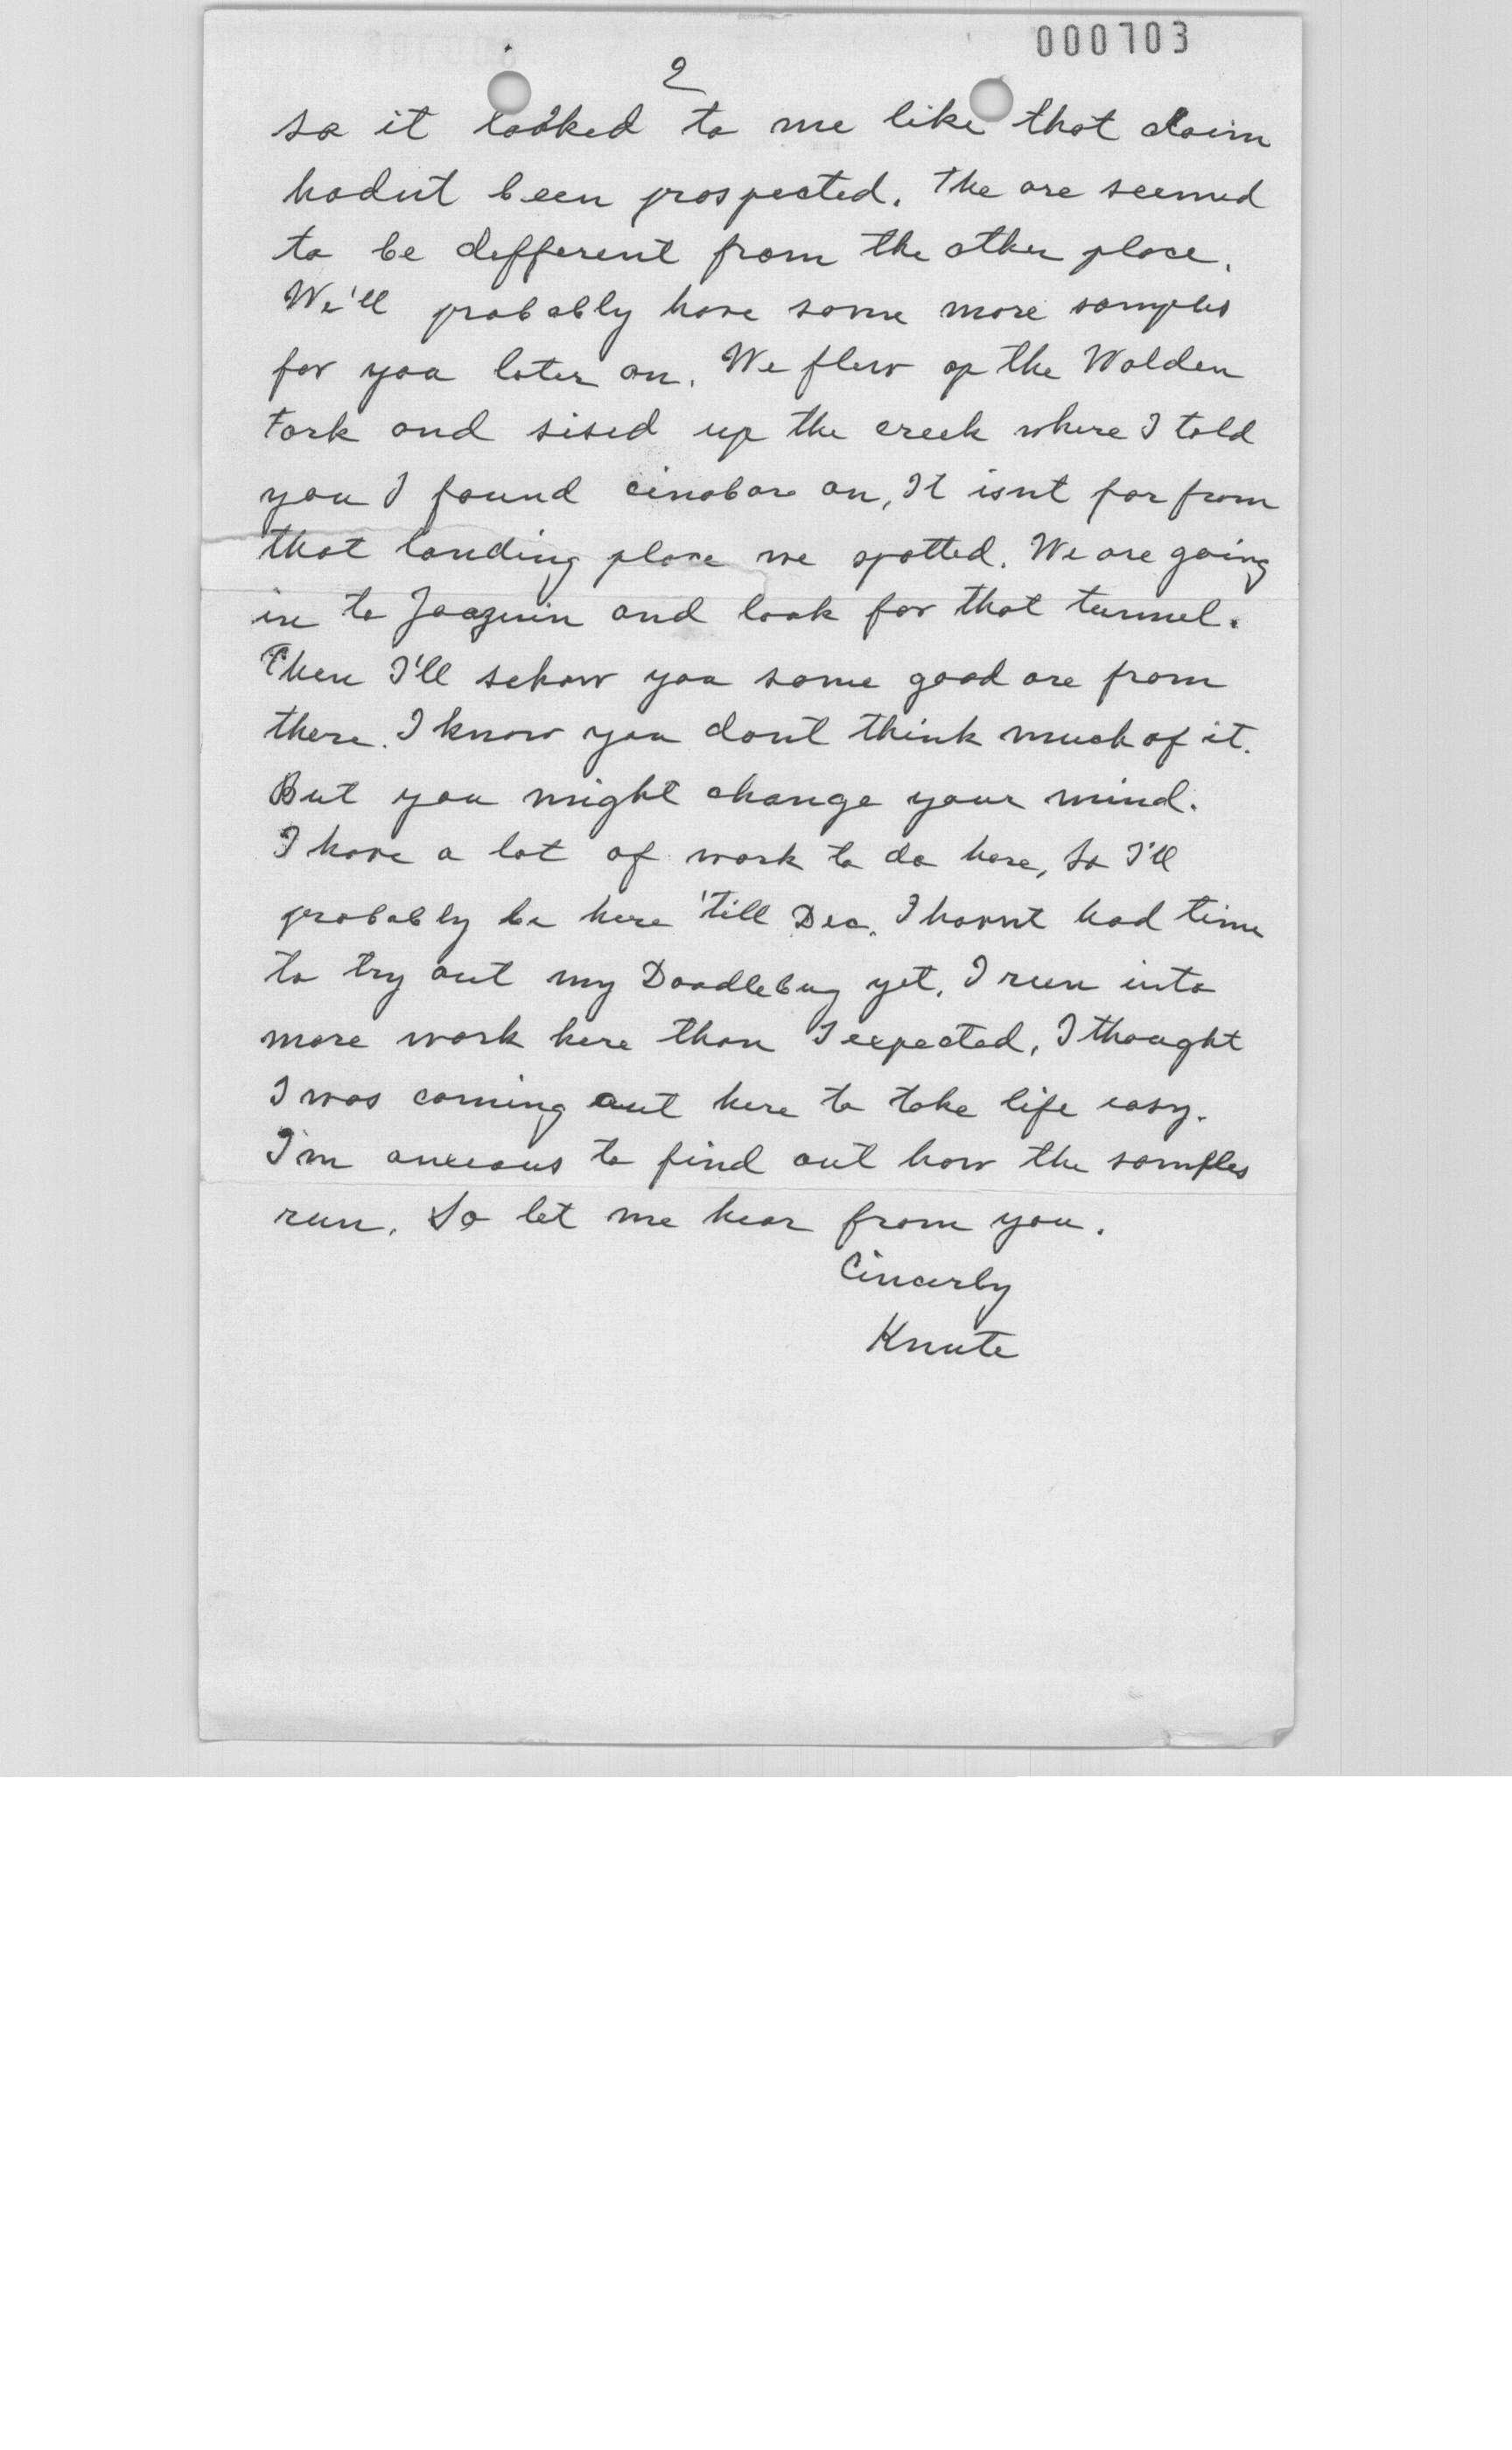 000703
2
so it looked to me like that claim
hadnt been prospected. The ore seemed
to be defferent from the other place.
We'll probably have some more samples
for you later on. We flew op the Walden
Fork and sised up the creek where I told
you I found cinabar on, It isnt far from
that landing place we spotted. We are going
in to Joaquin and look for that tunnel.
Then I'll schow you some good ore from
there. I know you dont think much of it.
But you might change your mind.
I have a lot of work to do here, So I'll
probably be here 'till Dec. I havnt had time
to try out my Doodlebug yet. I run into
more work here than I expected, I thought
I was coming out here to take life easy.
I'm anxious to find out how the samples
run. So let me hear from you.
Cincerly
Knute